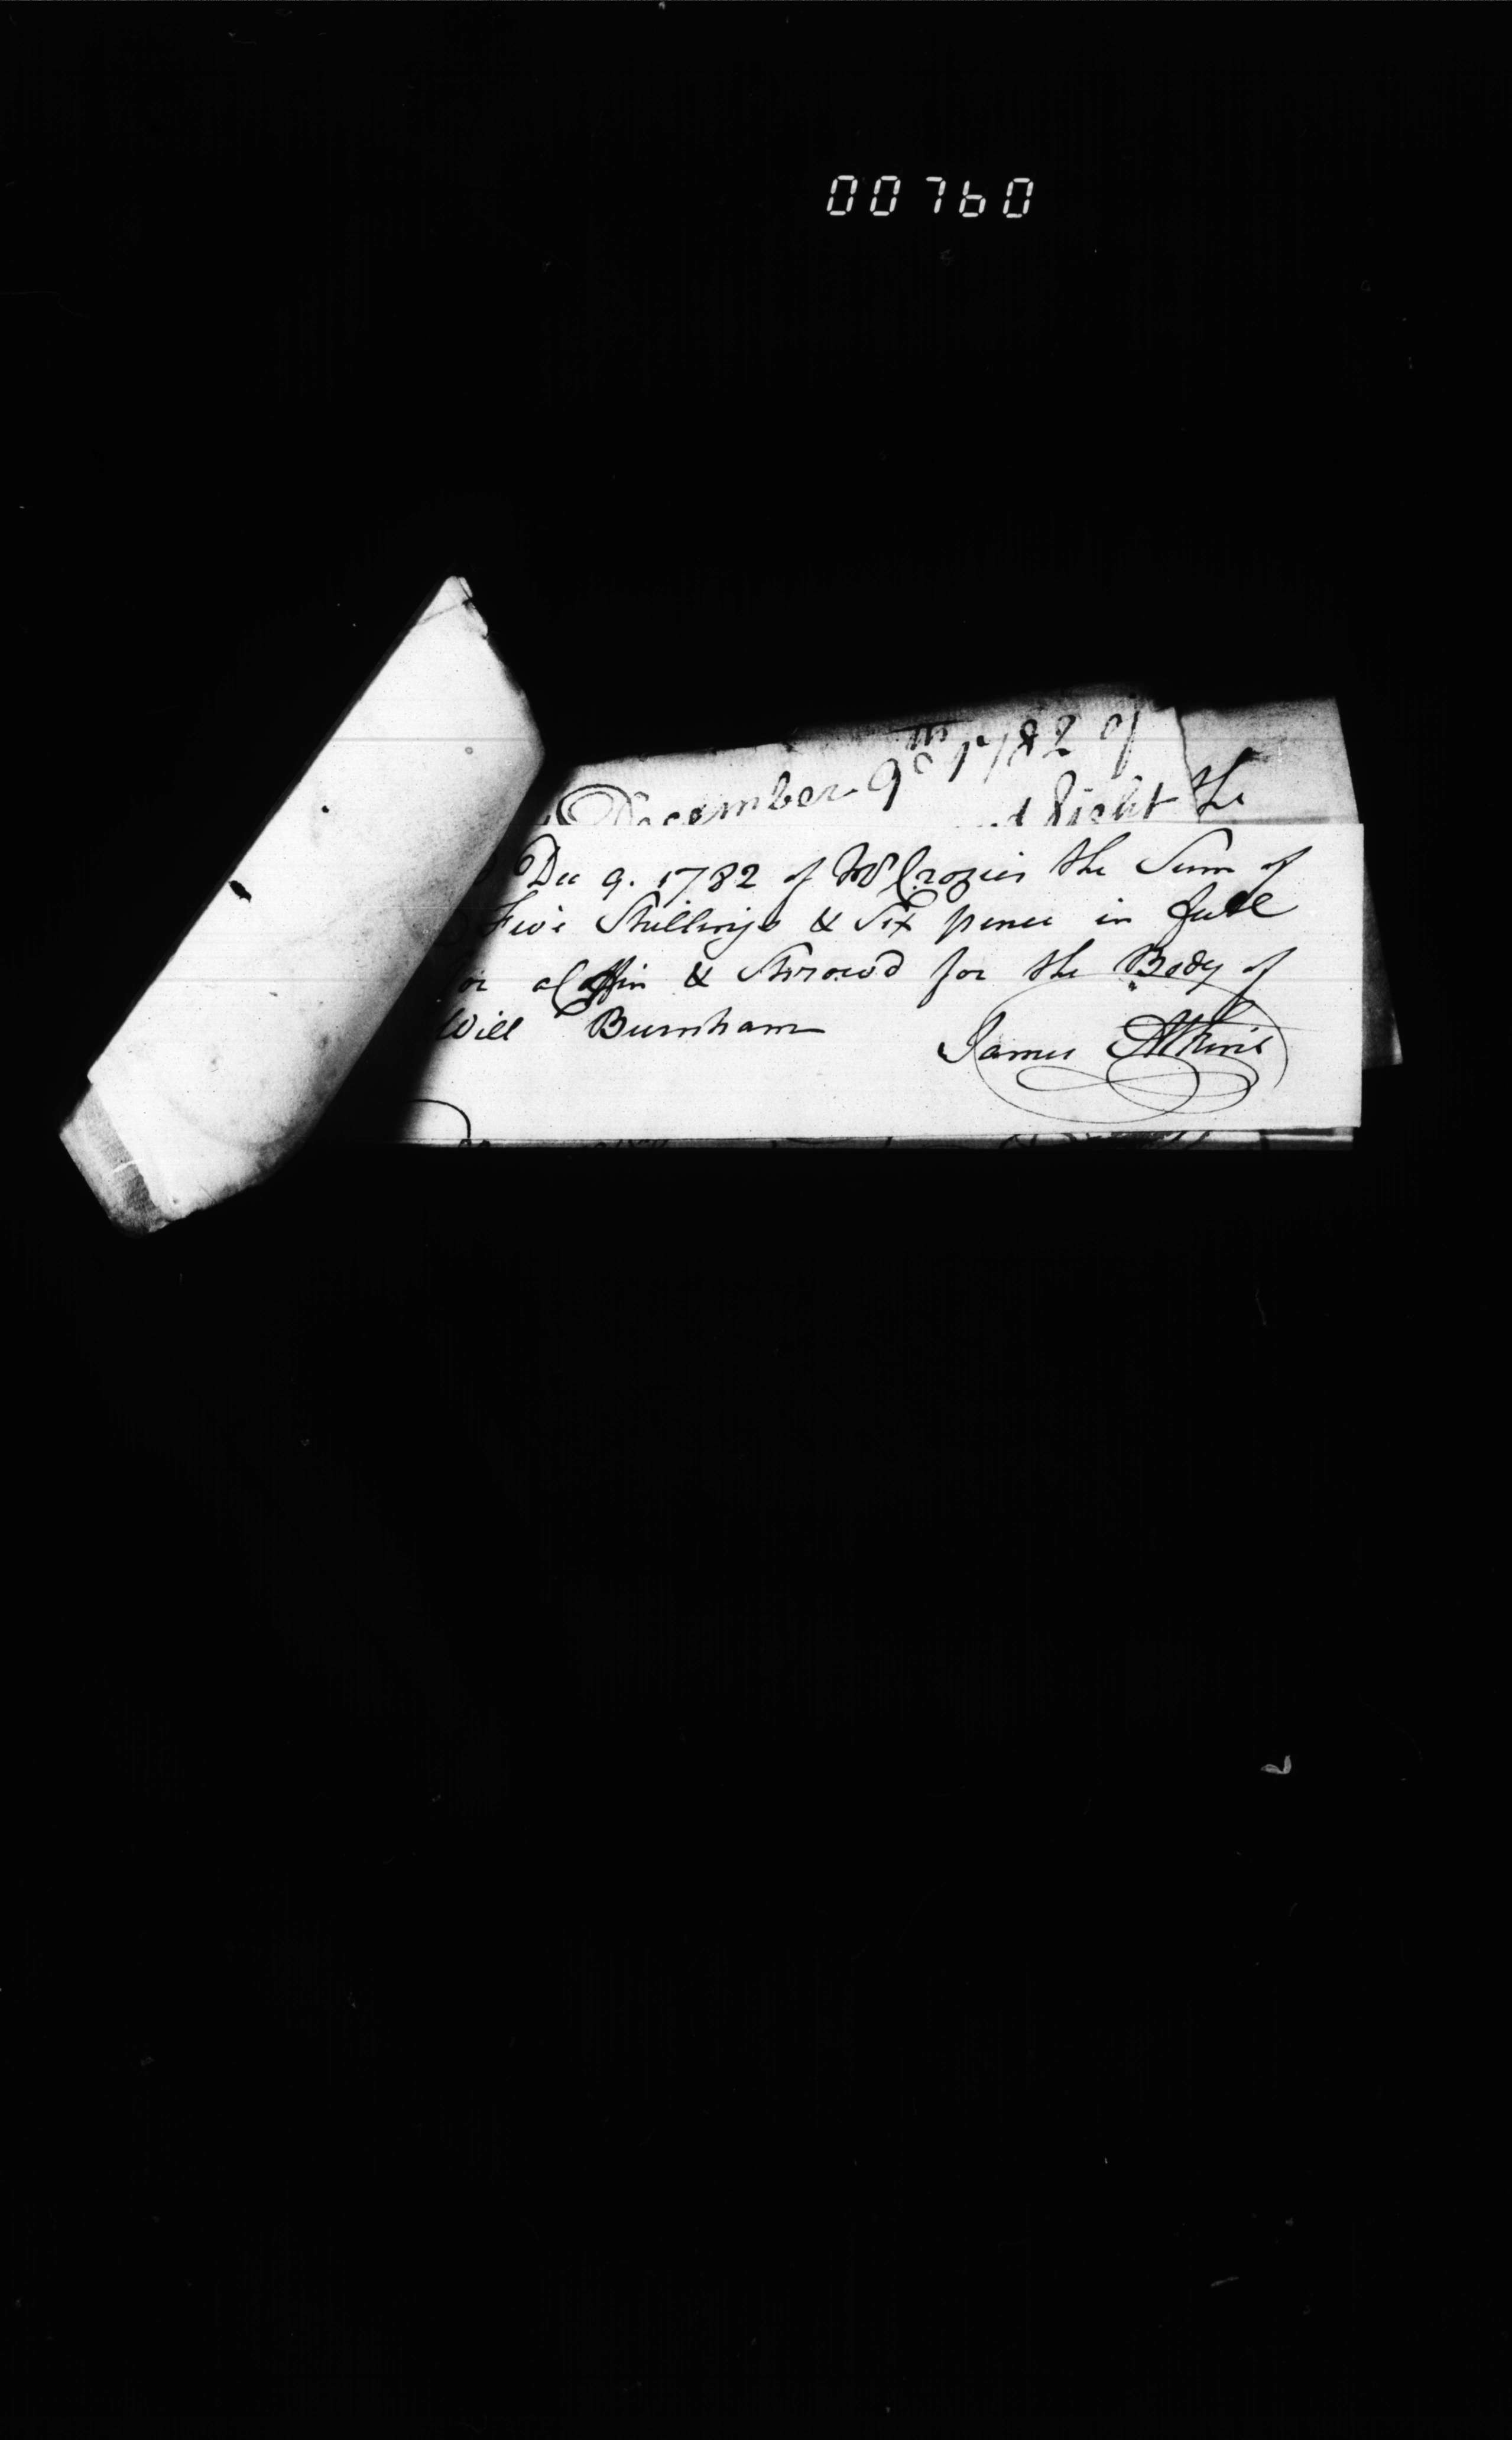 00760
December 9th 1782 of
Eight the
Dec 9. 1782 of Mr Crozier the Sum of
Five Shillings & Six pence in full
or a Coffin & Shrowd for the Body of
Will Burnham
James Atkins